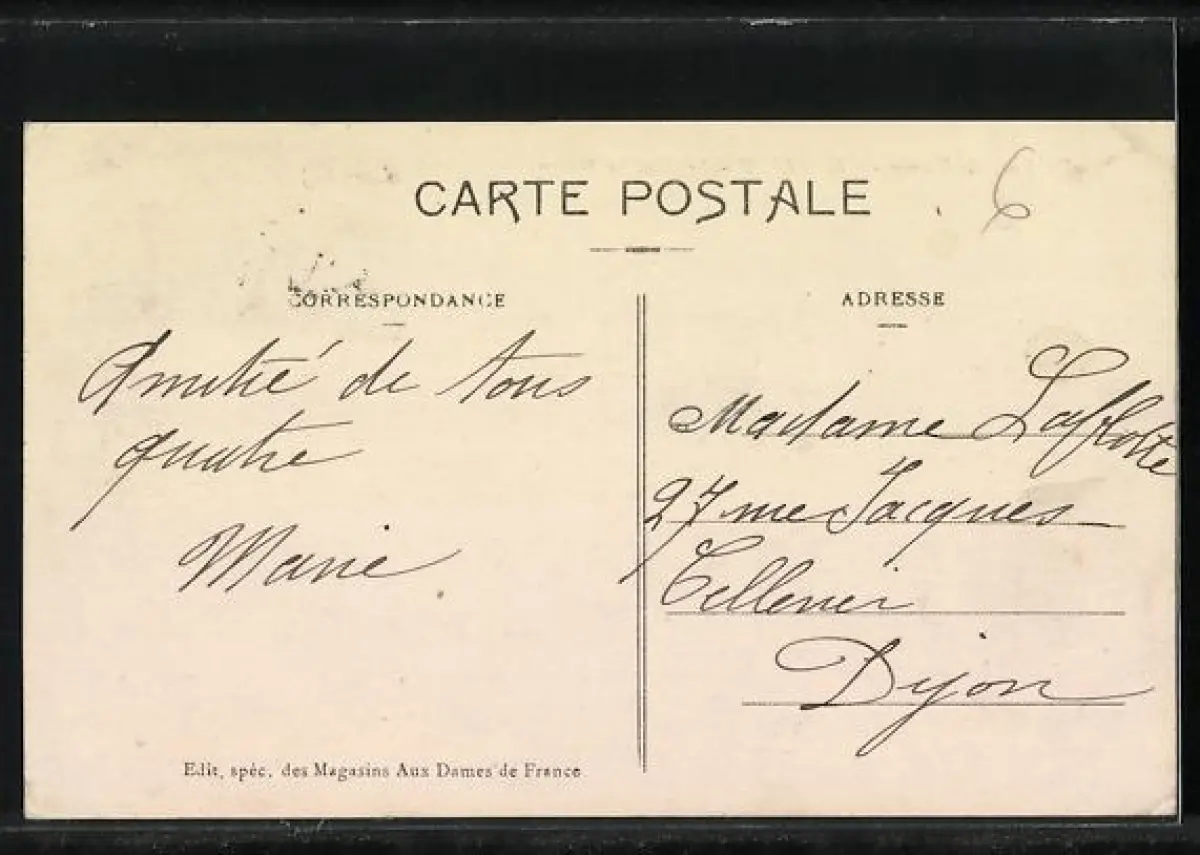 CARTE POSTALE
6
CORRESPONDANCE
Amitié de tous
quatre
Marie
Edit. spéc. des Magasins Aux Dames de France
ADRESSE
Madame Laflotte
27 rue Jacques
Cellerier
Dijon